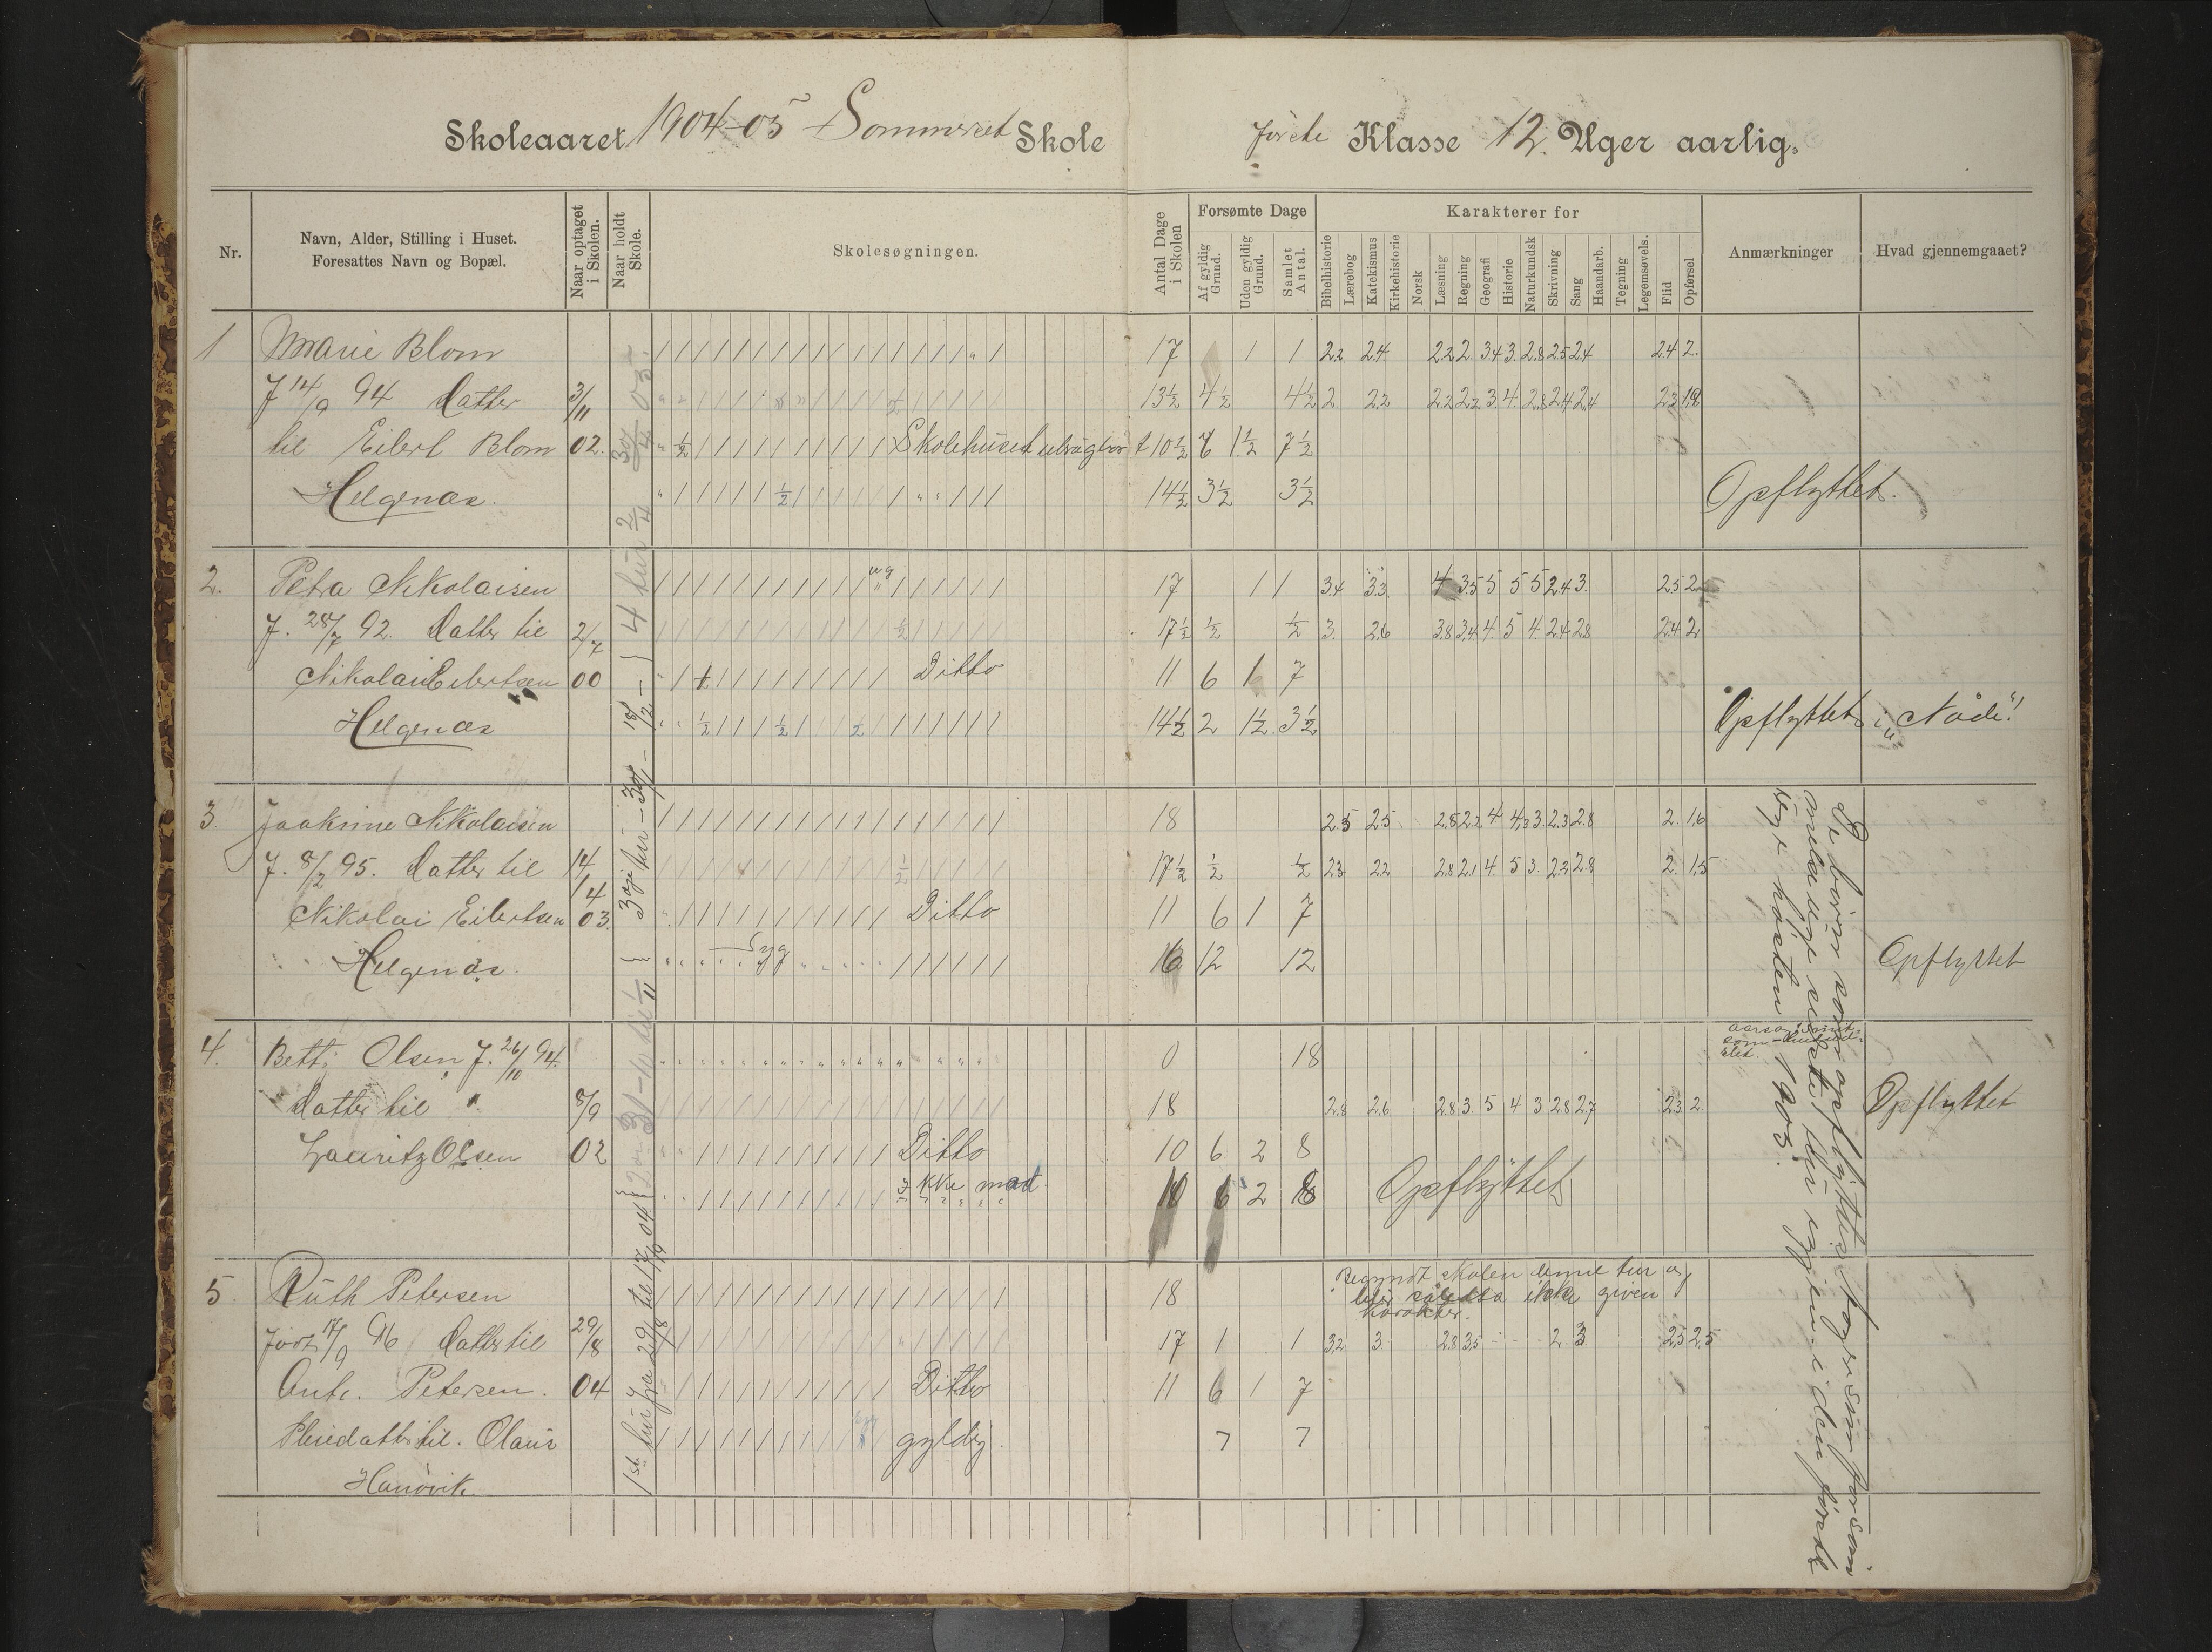 Skoleaaret 1904-05 Sommerset Skole
første Klasse 12. Uger aarlig.
Nr.
Navn, Alder, Stilling i Huset.
Foresattes Navn og Bopæl.
Naar optaget
i Skolen.
Naar holdt
Skole.
Skolesøgningen.
Antal Dage
i Skolen
Forsømte Dage
Af gyldig
Grund.
Uden gyldig
Grund.
Samlet
Antal.
Karakterer for
Bibelhistorie
Lærebog
Katekismus
Kirkehistorie
Norsk
Læsning
Regning
Geografi
Historie
Naturkundsk
Skrivning
Sang
Haandarb.
Tegning
Legemsøvels.
Flid
Opførsel
Anmærkninger
Hvad gjennemgaaet?
1 Marie Blom 17 1 1 2.2 2.4 2.2 2. 3.4 3. 2.8 2.5 2.4 2.4 2.
F 14/9 94 Datter 3/11 13½ 4½ 4½ 2. 2.2 2.2 2.2 3.4 4. 2.8 2.4 2.4 2.3 1.8
til Eilert Blom 02. ½ Skolehuset 10½ 1½ 7½
Helgenæs. ½ 14½ 3½ 3½ Opflyttet.
2. Petra Nikolaisen 17 1 1 3.4 3.3 4 3.5 5 5 5 2.4 3. 2.5 2
F. 28/7 92. Datter til 2/7 ½ 17½ ½ ½ 3. 2.6 3.8 3.4 4. 5 4. 2.4 2.8 2.4 2
Nikolai Eilertsen 00 Ditto 11 6 1 7
Helgenæs ½ ½ 14½ 2 1½ 3½ Opflyttet i "Nåde"!
3. Joakine Nikolaisen 18 2.5 2.5 2.8 2.2 4 4.3 3. 2.3 2.8 2. 1.6
F. 8/2 95. Datter til 14/4 ½ 17½ ½ ½ 2.3 2.2 2.8 2.1 4. 5 3. 2.2 2.8 2. 1.5
Nikolai Eilertsen 03. Ditto 11 6 1 7
Helgenæs. Syg 12 12 Opflyttet
4. Betti Olsen F. 26/10 94. 0 18
Datter til 8/9 18 2.8 2.6 2.8 3. 5 4 3. 2.8 2.7 2.3 2 Opflyttet
Lauritz Olsen 02 Ditto 10 6 2 8
Ikke mad 6 2 8 Opflyttet
5. Ruth Petersen 18 Begyndt skolen denne tur og
blir således ikke given
karakter.
Født 17/9 96 Datter til 29/8 17 1 1 3.2 3. 2.8 3.5 - - - 2. 3. 2.5 2.5
Ant. Petersen. 04 Ditto 11 6 1 7
Pleiedatter til. Olaus gyldig 7 7
Hansvik
1ste tur fra 29/8 til 17/9 04